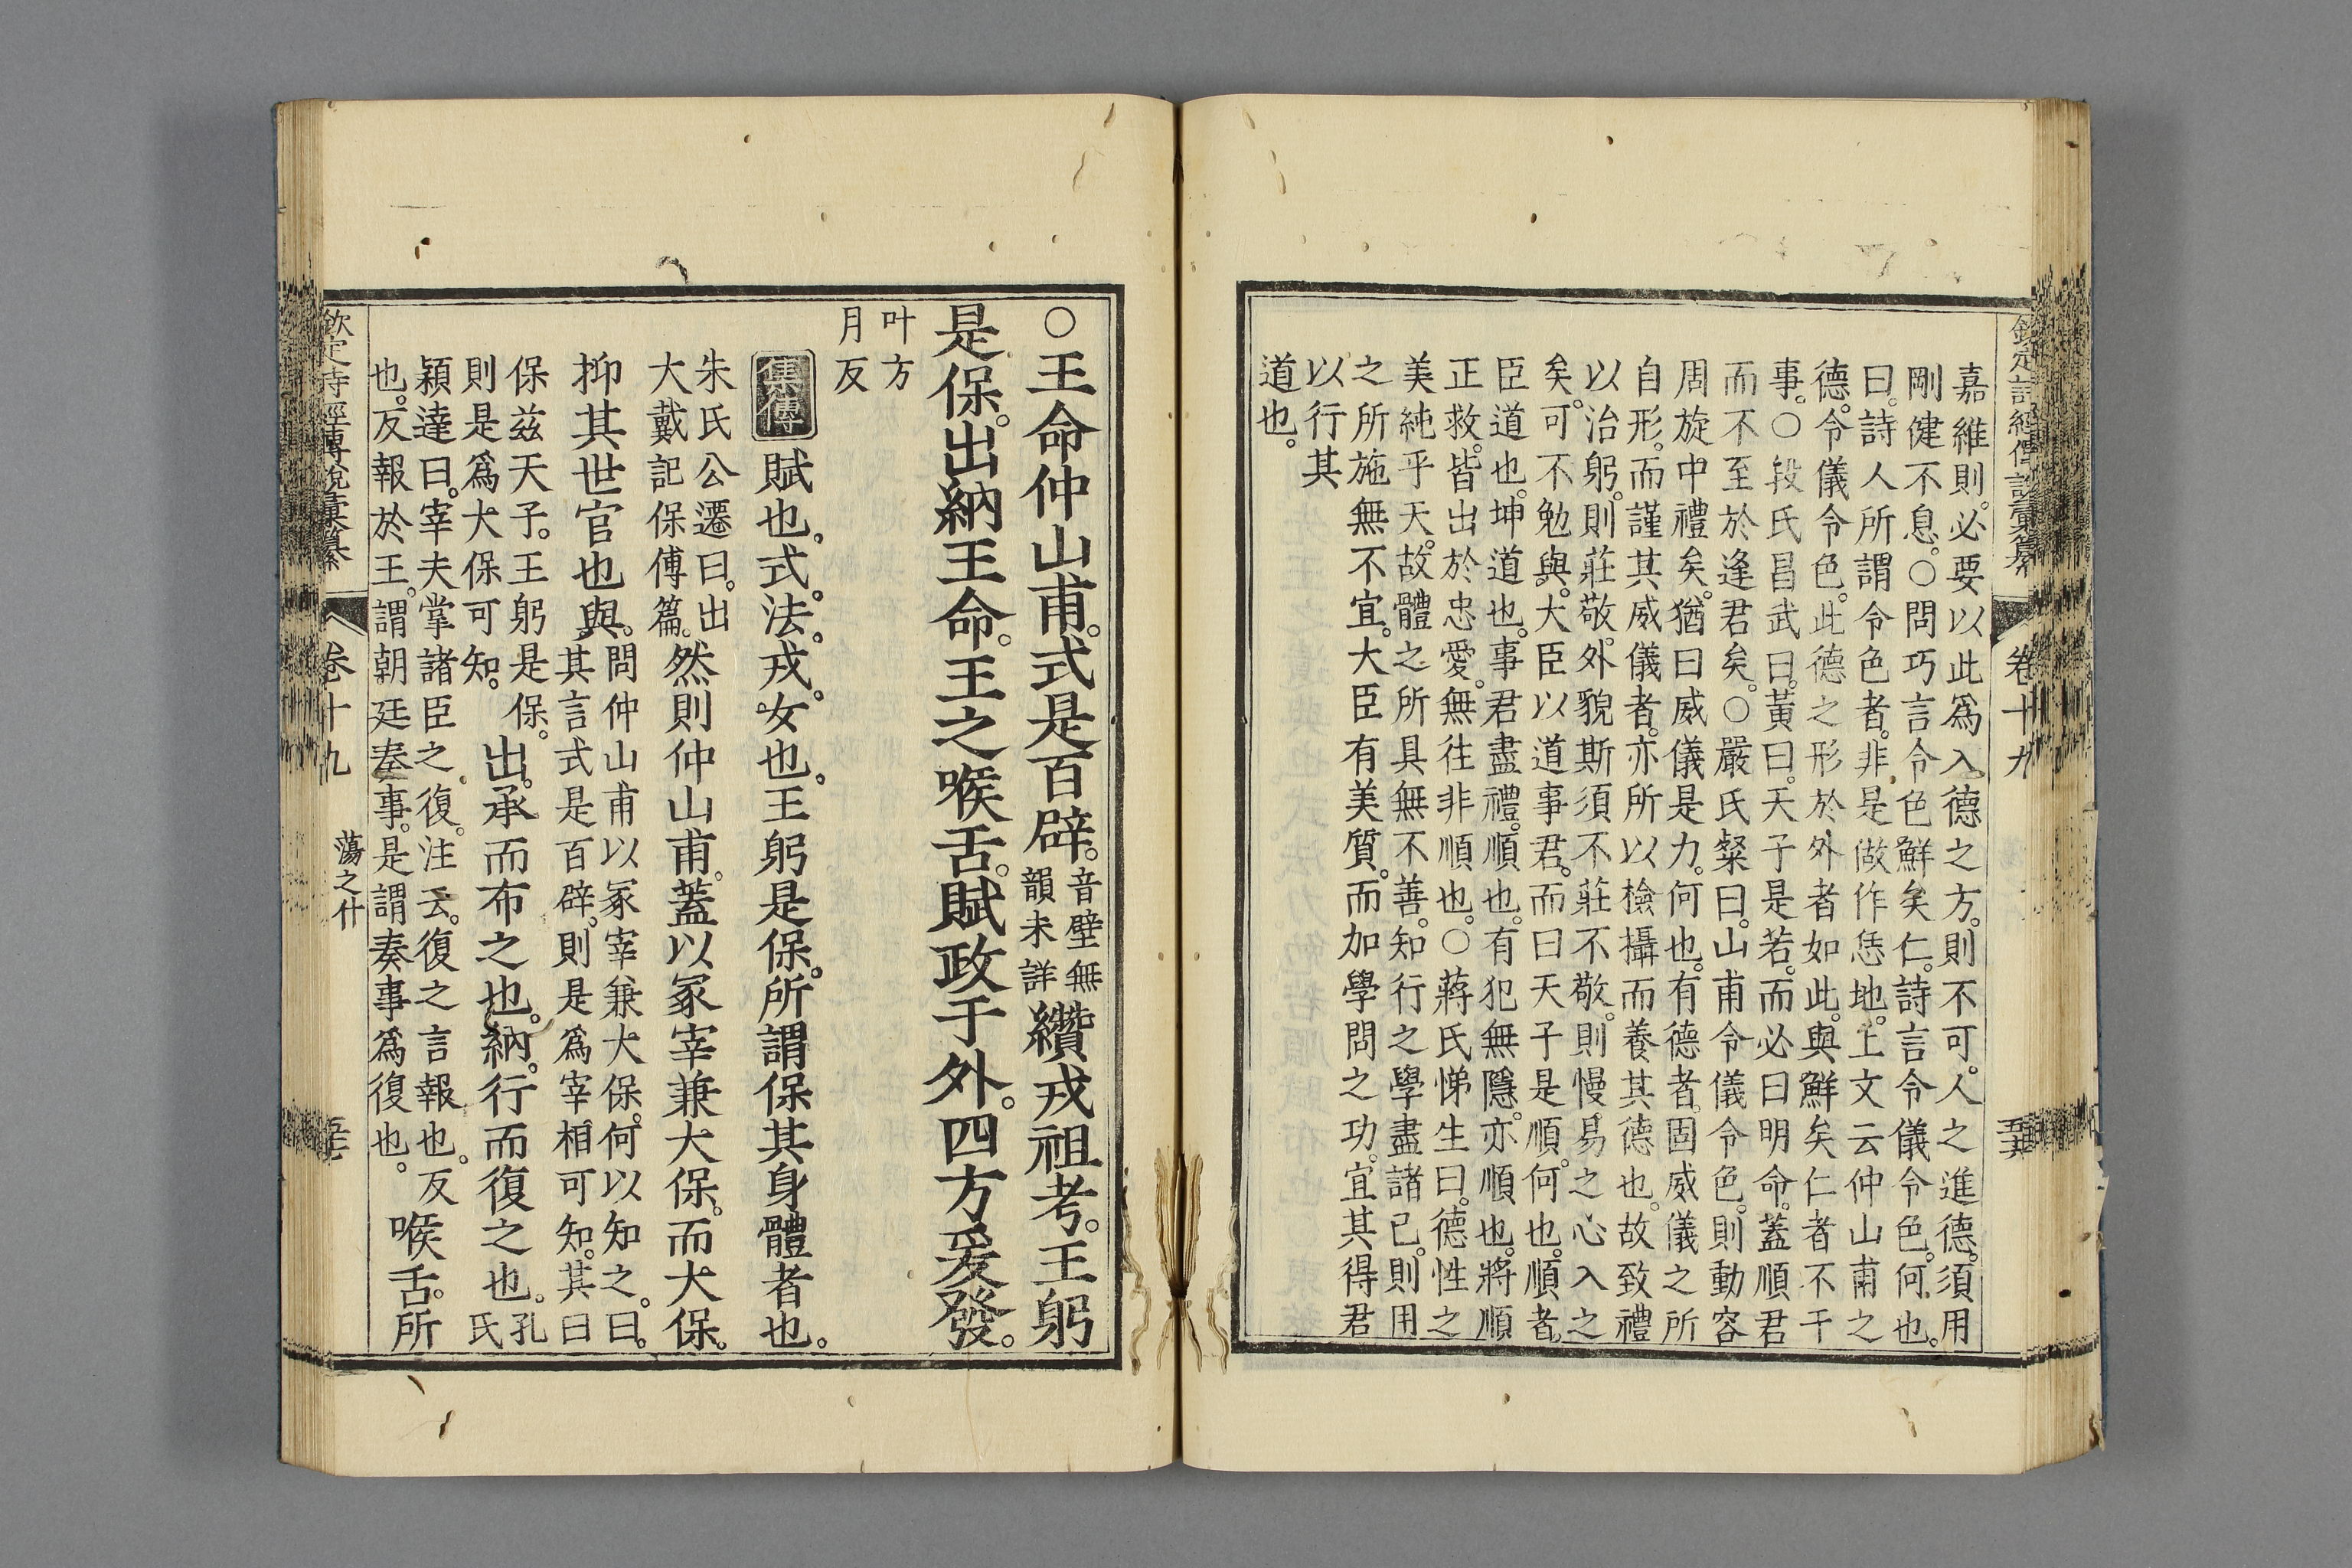 欽定詩經傳說彙纂 卷十九 五十六
嘉維則。必要以此爲入德之方。則不可。人之進德。須用
剛健不息。○問巧言令色鮮矣仁。詩言令儀令色。何也。
曰。詩人所謂令色者。非是做作恁地。上文云仲山甫之
德。令儀令色。此德之形於外者如此。與鮮矣仁者不干
事。○段氏昌武曰。黃曰。天子是若。而必曰明命。蓋順君
而不至於逢君矣。○嚴氏粲曰。山甫令儀令色。則動容
周旋中禮矣。猶曰威儀是力。何也。有德者。固威儀之所
自形。而謹其威儀者。亦所以檢攝而養其德也。故致禮
以治躬。則莊敬。外貌斯須不莊不敬。則慢易之心入之
矣。可不勉與。大臣以道事君。而曰天子是順。何也。順者。
臣道也。坤道也。事君盡禮。順也。有犯無隱。亦順也。將順
正救。皆出於忠愛。無往非順也。○蔣氏悌生曰。德性之
美純乎天。故體之所具無不善。知行之學盡諸已。則用
之所施無不宜。大臣有美質。而加學問之功。宜其得君
以行其
道也。
○王命仲山甫。式是百辟。音壁無韻未詳纘戎祖考。王躬
是保。出納王命。王之喉舌。賦政于外。四方爰發。
叶方
月反
集傳 賦也。式。法。戎。女也。王躬是保。所謂保其身體者也。
朱氏公遷曰。出大戴記保傅篇。然則仲山甫。蓋以冢宰兼大保。而大保。
抑其世官也與。問仲山甫以冢宰兼大保。何以知之。曰。其言式是百辟。則是爲宰相可知。其曰
保茲天子。王躬是保。則是爲大保可知。出。承而布之也。納。行而復之也。孔氏
穎達曰。宰夫掌諸臣之復。注云。復之言報也。反也。反報於王。謂朝廷奏事。是謂奏事爲復也。喉舌。所
欽定詩經傳說彙纂 卷十九 蕩之什